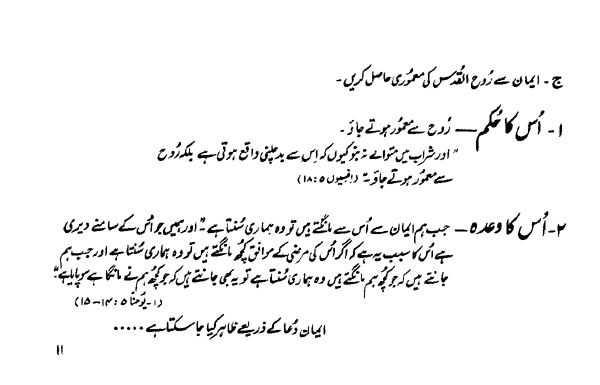 ج ۔ ایمان سے رُوح القُدس کی معموری حاصل کریں ۔
۱ ۔ اُس کا حُکم — رُوح سے معمُور ہوتے جاؤ ۔
" اور شراب میں متوالے نہ بنو کیوں کہ اِس سے بدچلنی واقع ہوتی ہے بلکہ رُوح
سے معمُور ہوتے جاؤ ۔" (افسیوں ۵ : ۱۸)
۲۔ اُس کا وعدہ — جب ہم ایمان سے اُس سے مانگتے ہیں تو وہ ہماری سُنتا ہے ۔ " اور ہمیں جو اُس کے سامنے دیری
ہے اُس کا سبب یہ ہے کہ اگر اُس کی مرضی کے موافق کچھ مانگتے ہیں تو وہ ہماری سُنتا ہے اور جب ہم
جانتے ہیں کہ جو کچھ ہم مانگتے ہیں وہ ہماری سُنتا ہے تو یہ بھی جانتے ہیں کہ جو کچھ ہم نے مانگا ہے سو پایا ہے ۔"
(۱۔یُوحنا ۵ : ۱۴ – ۱۵)
ایمان دُعا کے ذریعے ظاہر کیا جا سکتا ہے . . . . .
۱۱